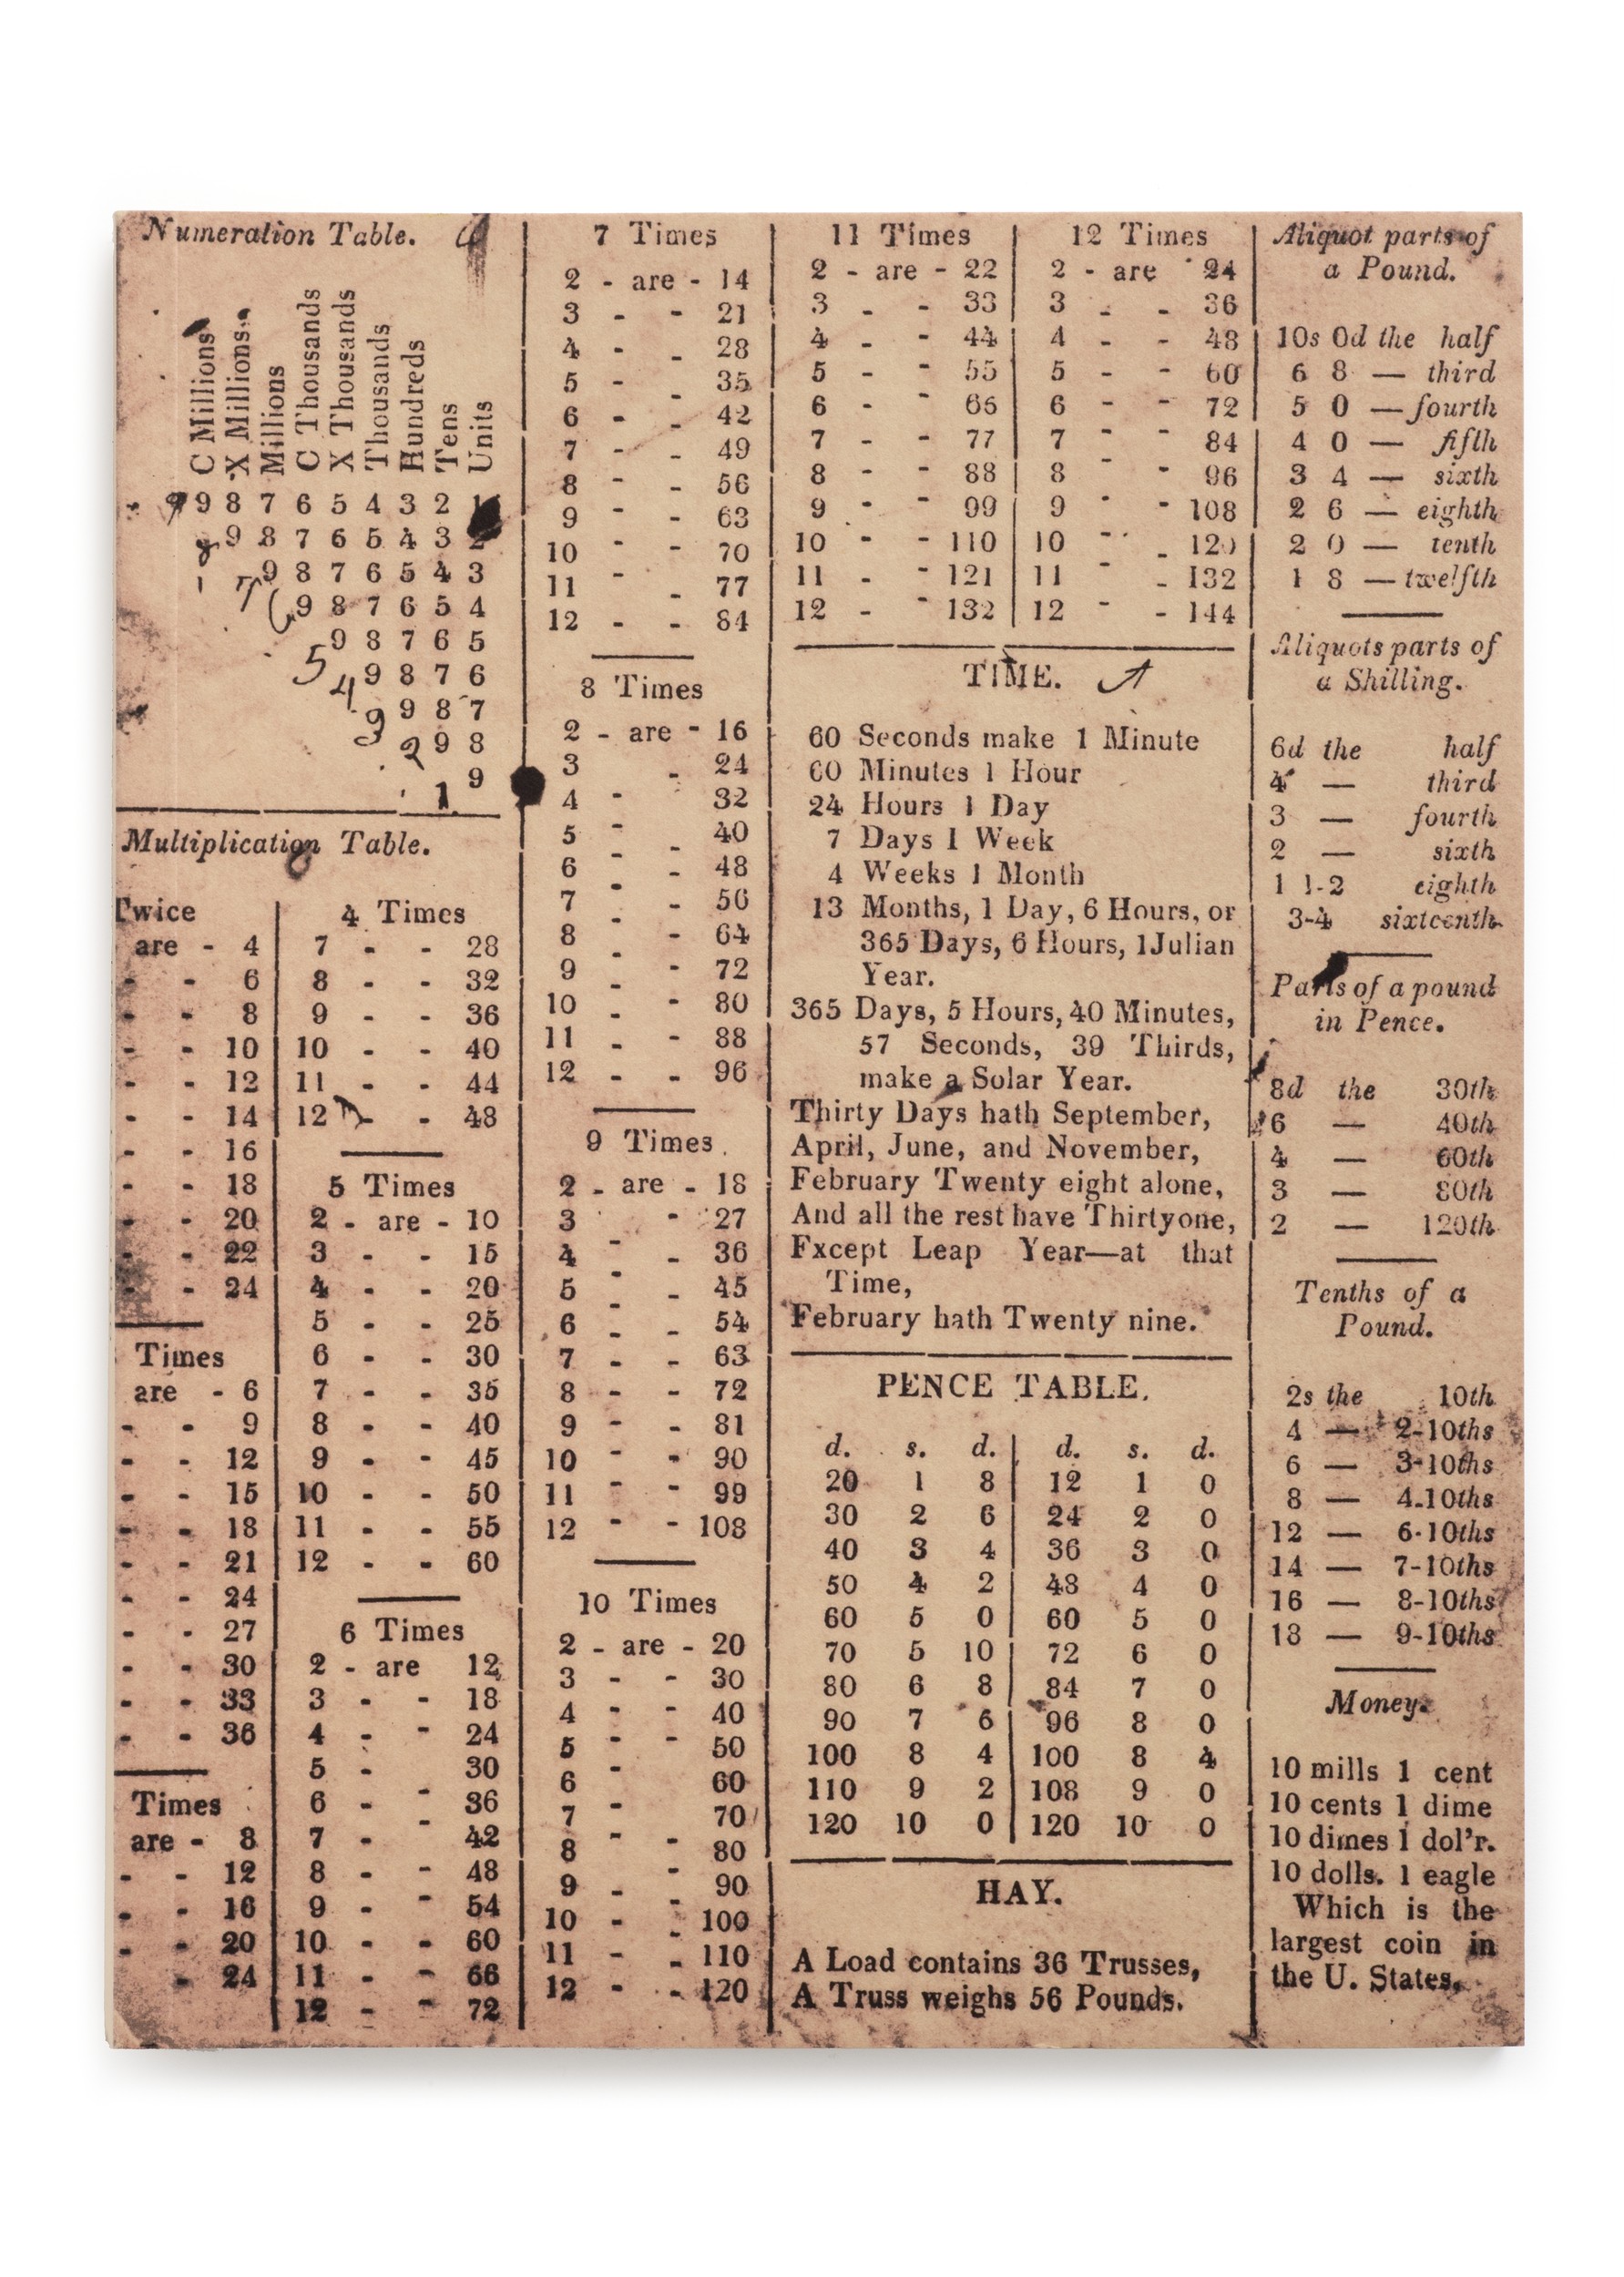 Numeration Table.
C Millions
X Millions
Millions
C Thousands
X Thousands
Thousands
Hundreds
Tens
Units
9 9 8 7 6 5 4 3 2 1
8 9 8 7 6 5 4 3 2
7 9 8 7 6 5 4 3
6 9 8 7 6 5 4
5 9 8 7 6 5
4 9 8 7 6
3 9 8 7
2 9 8
1 9
Multiplication Table.
Twice
are - 4
- - 6
- - 8
- - 10
- - 12
- - 14
- - 16
- - 18
- - 20
- - 22
- - 24
Times
are - 6
- - 9
- - 12
- - 15
- - 18
- - 21
- - 24
- - 27
- - 30
- - 33
- - 36
Times
are - 8
- - 12
- - 16
- - 20
- 24
4 Times
7 - - 28
8 - - 32
9 - - 36
10 - - 40
11 - - 44
12 - - 48
5 Times
2 - are - 10
3 - - 15
4 - - 20
5 - - 25
6 - - 30
7 - - 35
8 - - 40
9 - - 45
10 - - 50
11 - - 55
12 - - 60
6 Times
2 - are 12
3 - - 18
4 - - 24
5 - 30
6 - - 36
7 - 42
8 - - 48
9 - - 54
10 - - 60
11 - - 66
12 - - 72
7 Times
2 - are - 14
3 - - 21
4 - - 28
5 - - 35
6 - - 42
7 - - 49
8 - - 56
9 - - 63
10 - - 70
11 - - 77
12 - - 84
8 Times
2 - are - 16
3 - 24
4 - 32
5 - - 40
6 - - 48
7 - - 56
8 - - 64
9 - - 72
10 - - 80
11 - - 88
12 - - 96
9 Times.
2 - are - 18
3 - 27
4 - - 36
5 - - 45
6 - - 54
7 - - 63
8 - - 72
9 - - 81
10 - - 90
11 - - 99
12 - - 108
10 Times
2 - are - 20
3 - - 30
4 - - 40
5 - - 50
6 - 60
7 - 70
8 - - 80
9 - - 90
10 - - 100
11 - - 110
12 - - 120
11 Times
2 - are - 22
3 - - 33
4 - - 44
5 - - 55
6 - - 66
7 - - 77
8 - - 88
9 - - 99
10 - - 110
11 - - 121
12 - - 132
12 Times
2 - are 24
3 - - 36
4 - - 48
5 - - 60
6 - - 72
7 - - 84
8 - - 96
9 - - 108
10 - - 120
11 - - 132
12 - - 144
TIME.
60 Seconds make 1 Minute
60 Minutes 1 Hour
24 Hours 1 Day
7 Days 1 Week
4 Weeks 1 Month
13 Months, 1 Day, 6 Hours, or
365 Days, 6 Hours, 1 Julian
Year.
365 Days, 5 Hours, 40 Minutes,
57 Seconds, 39 Thirds,
make a Solar Year.
Thirty Days hath September,
April, June, and November,
February Twenty eight alone,
And all the rest have Thirtyone,
Fxcept Leap Year—at that
Time,
February hath Twenty nine.
PENCE TABLE.
d. s. d. d. s. d.
20 1 8 12 1 0
30 2 6 24 2 0
40 3 4 36 3 0
50 4 2 48 4 0
60 5 0 60 5 0
70 5 10 72 6 0
80 6 8 84 7 0
90 7 6 96 8 0
100 8 4 100 8 4
110 9 2 108 9 0
120 10 0 120 10 0
HAY.
A Load contains 36 Trusses,
A Truss weighs 56 Pounds.
Aliquot parts of
a Pound.
10s 0d the half
6 8 — third
5 0 — fourth
4 0 — fifth
3 4 — sixth
2 6 — eighth
2 0 — tenth
1 8 — twelfth
Aliquots parts of
a Shilling.
6d the half
4 — third
3 — fourth
2 — sixth
1 1-2 eighth
3-4 sixteenth
Parts of a pound
in Pence.
8d the 30th
6 — 40th
4 — 60th
3 — 80th
2 — 120th
Tenths of a
Pound.
2s the 10th
4 — 2-10ths
6 — 3-10ths
8 — 4-10ths
12 — 6-10ths
14 — 7-10ths
16 — 8-10ths
18 — 9-10ths
Money.
10 mills 1 cent
10 cents 1 dime
10 dimes 1 dol'r.
10 dolls. 1 eagle
Which is the
largest coin in
the U. States.